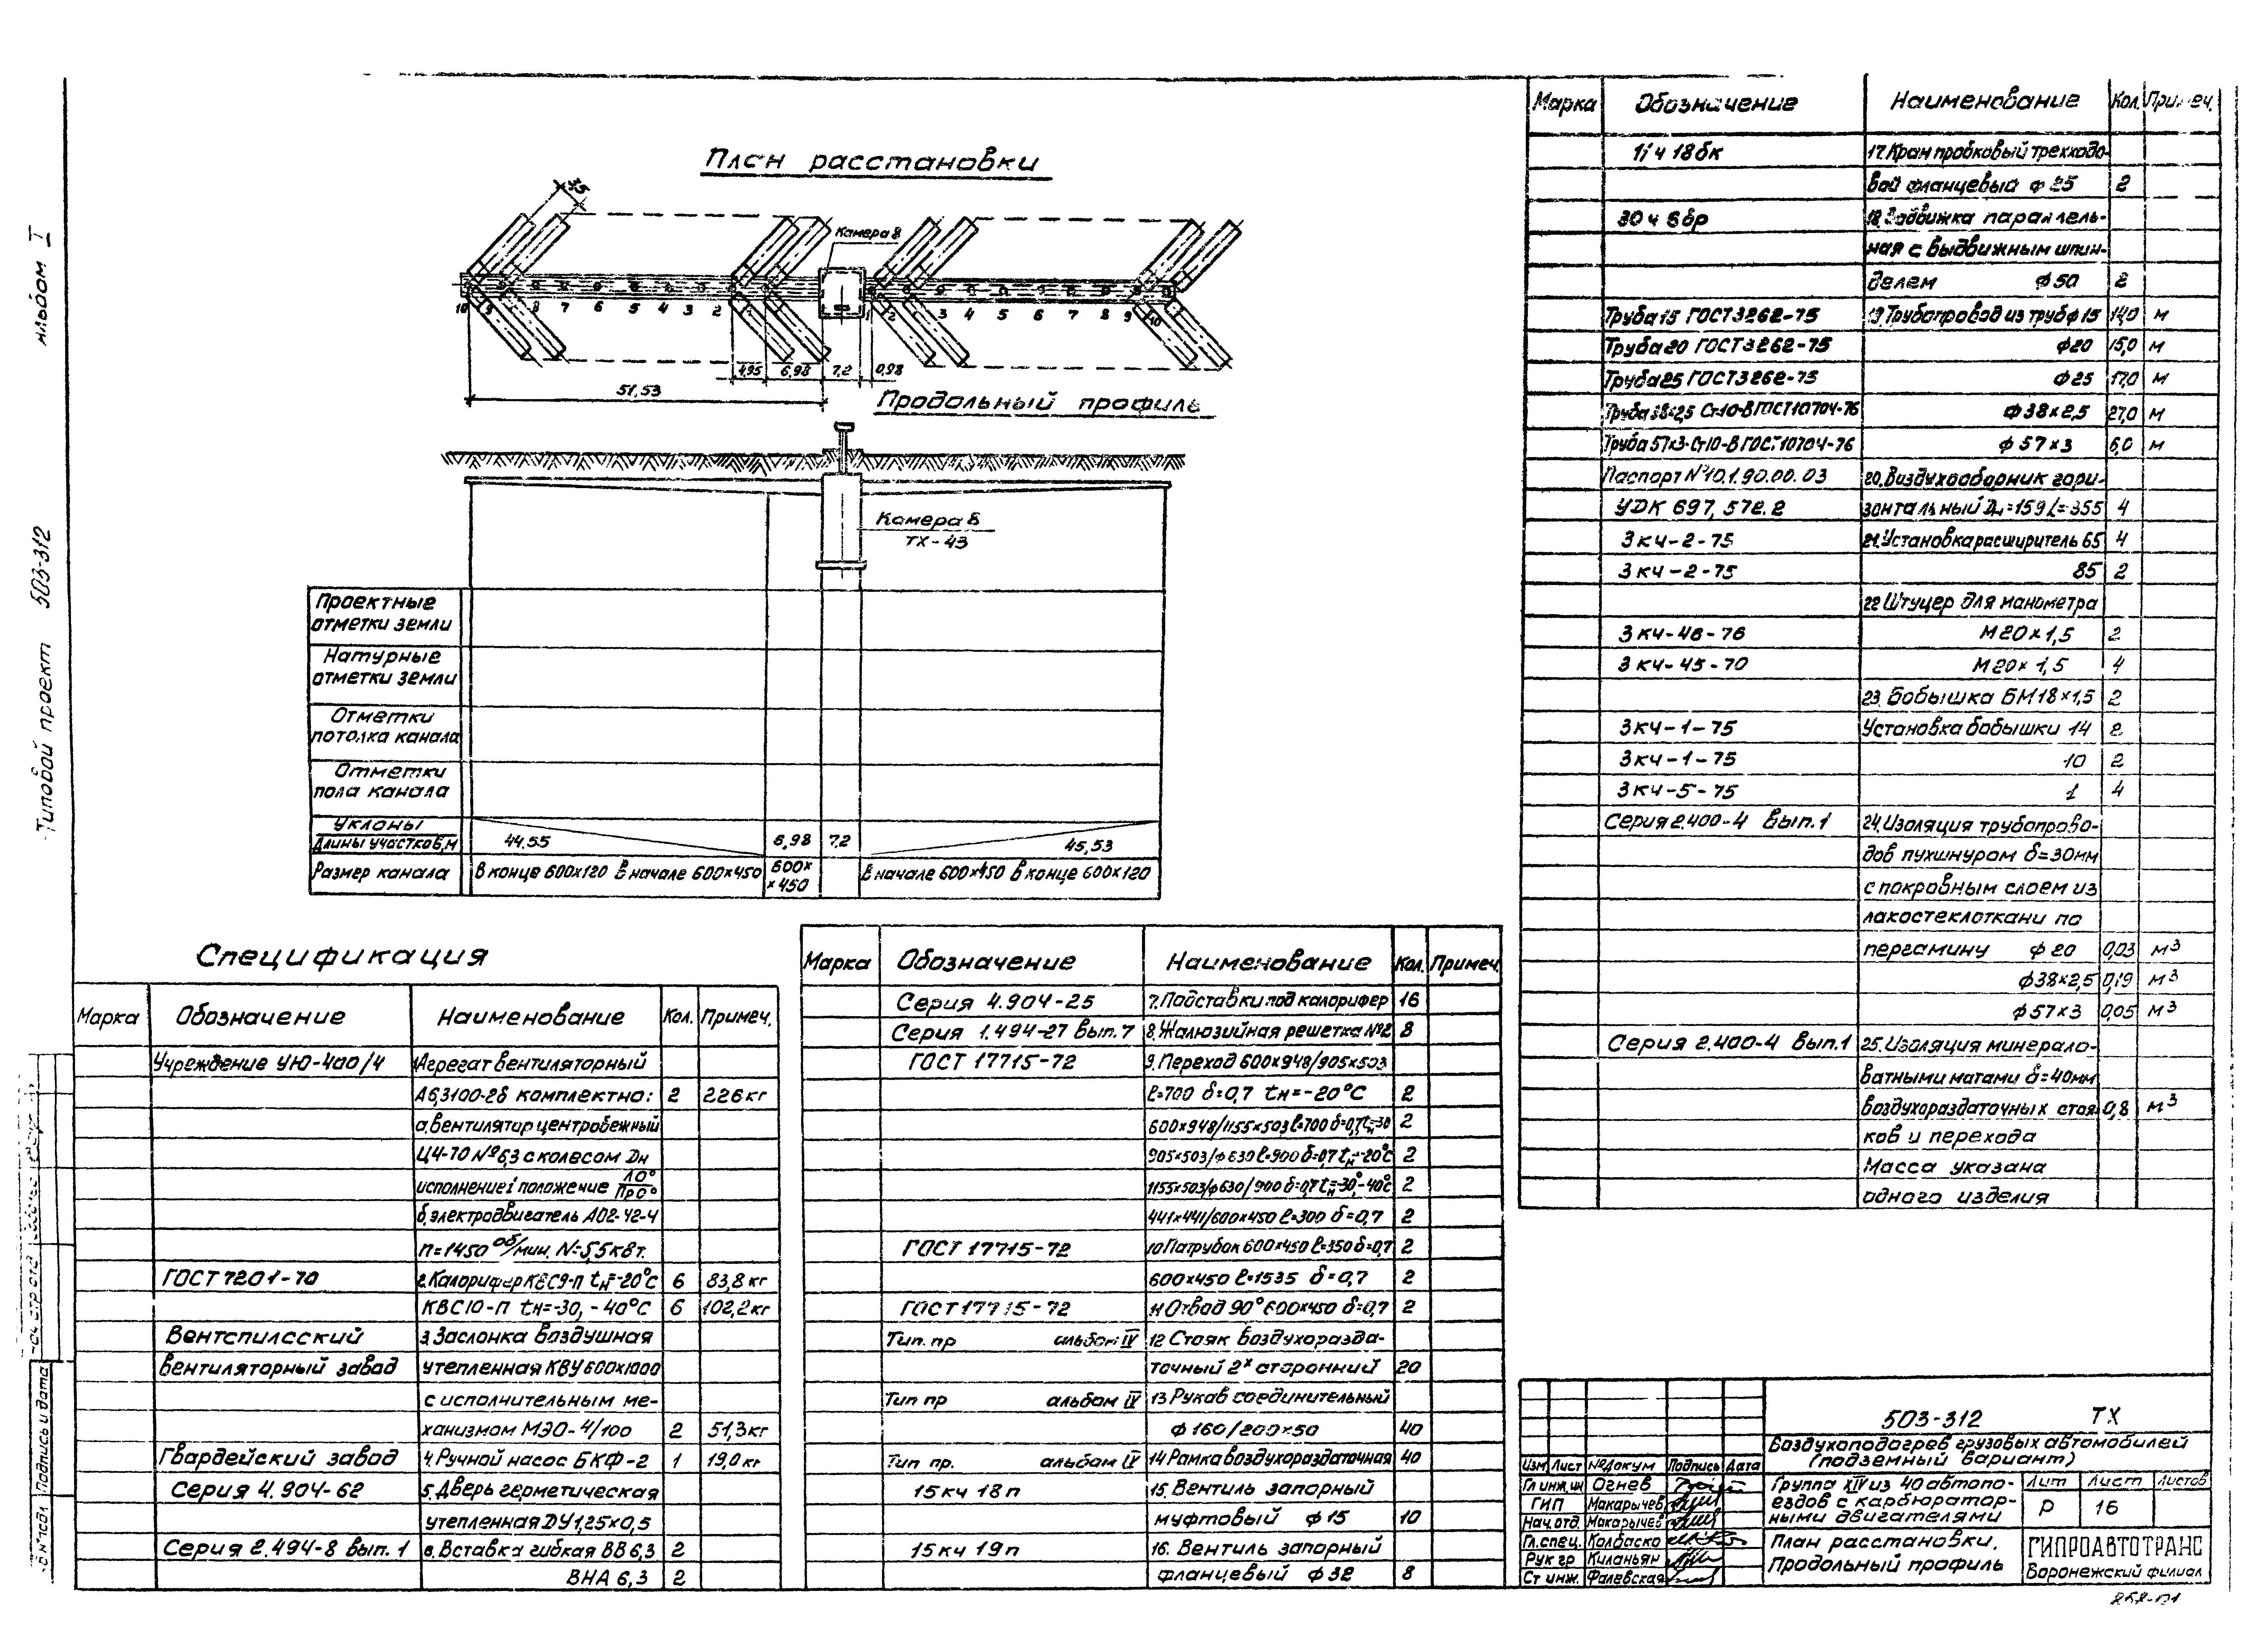 Альбом I
Типовой проект 503-312
Подпись и дата
План расстановки
3,5
Камера 8
10 9 8 7 6 5 4 3 2 1
1 2 3 4 5 6 7 8 9 10
4,95 6,98 7,2 0,98
51,53
Продольный профиль
Камера 8
ТХ-43
Проектные
отметки земли
Натурные
отметки земли
Отметки
потолка канала
Отметки
пола канала
Уклоны
Длины участков, м 44,55 6,98 7,2 45,53
Размер канала В конце 600х120 В начале 600х450 600х х450 В начале 600х450 В конце 600х120
Спецификация
Марка Обозначение Наименование Кол. Примеч.
Учреждение УЮ-400/4 Агрегат вентиляторный
А6,3100-2б комплектно: 2 226кг
а.вентилятор центробежный
Ц4-70 №6,3 с колесом Дн
исполнение 1 положение Л0°/Пр0°
б.электродвигатель АО2-42-4
n=1450 об/мин. N=5,5квт.
ГОСТ 7201-70 2.Калорифер КВС9-П tн=-20°С 6 83,8 кг
КВС10-П tн=-30, -40°С 6 102,2кг
Вентспилсский 3.Заслонка воздушная
вентиляторный завод утепленная КВУ 600х1000
с исполнительным ме-
ханизмом МЭО-4/100 2 51,3кг
Гвардейский завод 4.Ручной насос БКФ-2 1 19,0кг
Серия 4.904-62 5.Дверь герметическая
утепленная ДУ 1,25х0,5
Серия 2.494-8 вып.1 6.Вставка гибкая ВВ 6,3 2
ВНА 6,3 2
Марка Обозначение Наименование Кол. Примеч.
Серия 4.904-25 7.Подставки под калорифер 16
Серия 1.494-27 вып.7 8.Жалюзийная решетка №2 8
ГОСТ 17715-72 9.Переход 600х948/905х503
ℓ=700 δ=0,7 tн=-20°С 2
600х948/1155х503 ℓ=700 δ=0,7 tн=-30 2
905х503/ф630 ℓ=900 δ=0,7 tн=-20°С 2
1155х503/ф630/900 δ=0,7 tн=-30°,-40°С 2
441х441/600х450 ℓ=300 δ=0,7 2
ГОСТ 17715-72 10 Патрубок 600х450 ℓ=350 δ=0,7 2
600х450 ℓ=1535 δ=0,7 2
ГОСТ 17715-72 11 Отвод 90° 600х450 δ=0,7 2
Тип. пр альбом IV 12 Стояк воздухоразда-
точный 2х сторонний 20
Тип пр альбом IV 13 Рукав соединительный
ф 160/200х50 40
Тип пр. альбом IV 14 Рамка воздухораздаточная 40
15кч 18п 15. Вентиль запорный
муфтовый ф 15 10
15кч 19п 16. Вентиль запорный
фланцевый ф 32 8
Марка Обозначение Наименование Кол. Примеч.
11ч 18бк 17.Кран пробковый трехходо-
вой фланцевый ф 25 2
30ч 6бр 18.Задвижка параллель-
ная с выдвижным шпин-
делем ф50 2
Труба 15 ГОСТ 3262-75 19.Трубопровод из труб ф15 14,0 м
Труба 20 ГОСТ 3262-75 ф20 15,0 м
Труба 25 ГОСТ 3262-75 ф25 17,0 м
Труба 38х2,5 Ст10-В ГОСТ 10704-76 ф38х2,5 27,0 м
Труба 57х3-Ст10-В ГОСТ 10704-76 ф57х3 6,0 м
Паспорт №10.1.90.00.03 20.Воздухосборник гори-
УДК 697, 572.2 зонтальный Дн=159 L=355 4
3 кч-2-75 21.Установка расширитель 65 4
3 кч-2-75 85 2
22 Штуцер для манометра
3 кч-46-76 М20х1,5 2
3 кч-45-70 М20х1,5 4
23. Бобышка БМ18х1,5 2
3 кч-1-75 Установка бобышки 14 2
3 кч-1-75 10 2
3 кч-5-75 1 4
Серия 2.400-4 вып.1 24.Изоляция трубопрово-
дов пухшнуром δ=30мм
с покровным слоем из
лакостеклоткани по
пергамину ф 20 0,03 м³
ф38х2,5 0,19 м³
ф57х3 0,05 м³
Серия 2.400-4 вып.1 25.Изоляция минерало-
ватными матами δ=40мм
воздухораздаточных стоя- 0,8 м³
ков и перехода
Масса указана
одного изделия
503-312 ТХ
Воздухоподогрев грузовых автомобилей
(подземный вариант)
Изм Лист №докум Подпись Дата
Гл инж. ин Огнев
ГИП Макарычев
Нач. отд. Макарычев
Гл.спец. Колбаско
Рук гр Киланьян
Ст инж. Фалевская
Группа XIV из 40 автопо-
ездов с карбюратор-
ными двигателями
Лит Лист Листов
Р 16
План расстановки.
Продольный профиль
ГИПРОАВТОТРАНС
Воронежский филиал